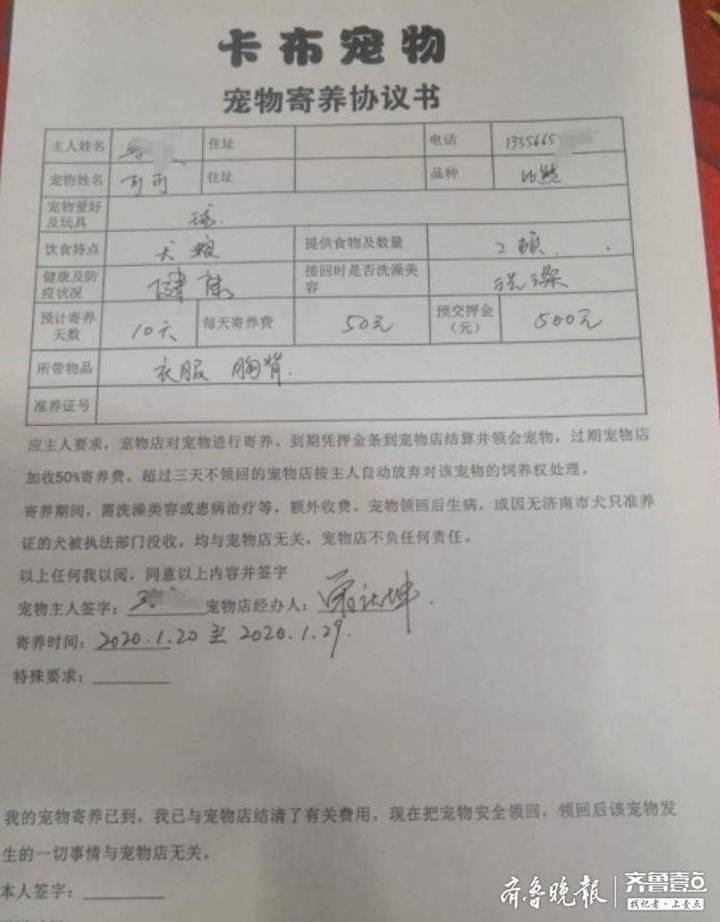 卡布宠物
宠物寄养协议书
主人姓名 住址 电话 1335665
宠物姓名 可可 住址 品种 比熊
宠物爱好及玩具 球
饮食特点 犬粮 提供食物及数量 2顿
健康及防疫状况 健康 接回时是否洗澡美容 洗澡
预计寄养天数 10天 每天寄养费 50元 预交押金(元) 500元
所带物品 衣服 胸背
准养证号
应主人要求，宠物店对宠物进行寄养、到期凭押金条到宠物店结算并领会宠物，过期宠物店
加收50%寄养费。超过三天不领回的宠物店按主人自动放弃对该宠物的饲养权处理。
寄养期间，需洗澡美容或患病治疗等，额外收费。宠物领回后生病，或因无济南市犬只准养
证的犬被执法部门没收，均与宠物店无关，宠物店不负任何责任。
以上任何我以阅，同意以上内容并签字
宠物主人签字： 宠物店经办人：
寄养时间：2020.1.20 至 2020.1.29.
特殊要求：
我的宠物寄养已到，我已与宠物店结清了有关费用，现在把宠物安全领回，领回后该宠物发
生的一切事情与宠物店无关。
本人签字：
齐鲁晚报 齐鲁壹点
找记者·上壹点